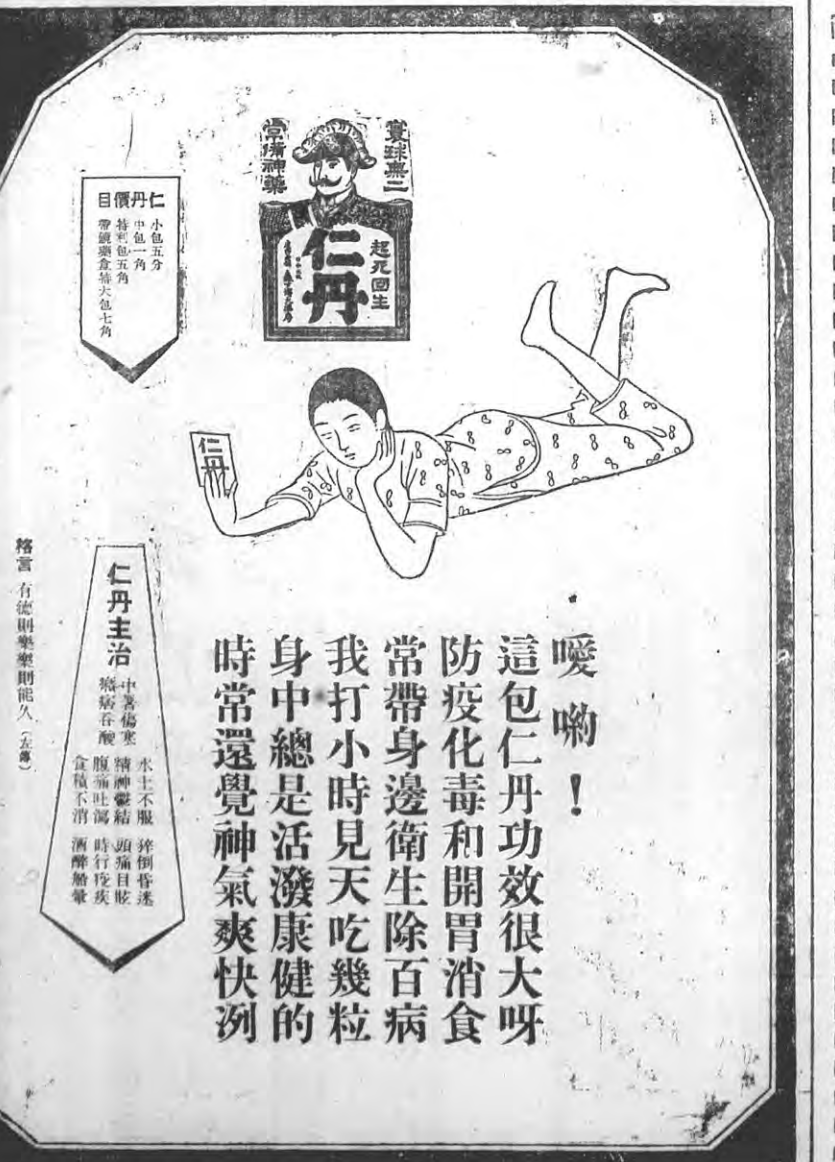 寰球無二
常備神藥
起死回生
仁丹
仁丹價目
小包五分
中包一角
特利包五角
帶鏡藥盒特大包七角
仁丹
噯喲！
這包仁丹功效很大呀
防疫化毒和開胃消食
常帶身邊衛生除百病
我打小時見天吃幾粒
身中總是活潑康健的
時常還覺神氣爽快洌
仁丹主治
中暑傷寒 水土不服 猝倒昏迷
精神鬱結 頭痛目眩
瘧痢吞酸 腹痛吐瀉 時行疫疾
食積不消 酒醉船暈
格言 有德則樂樂則能久（左傳）